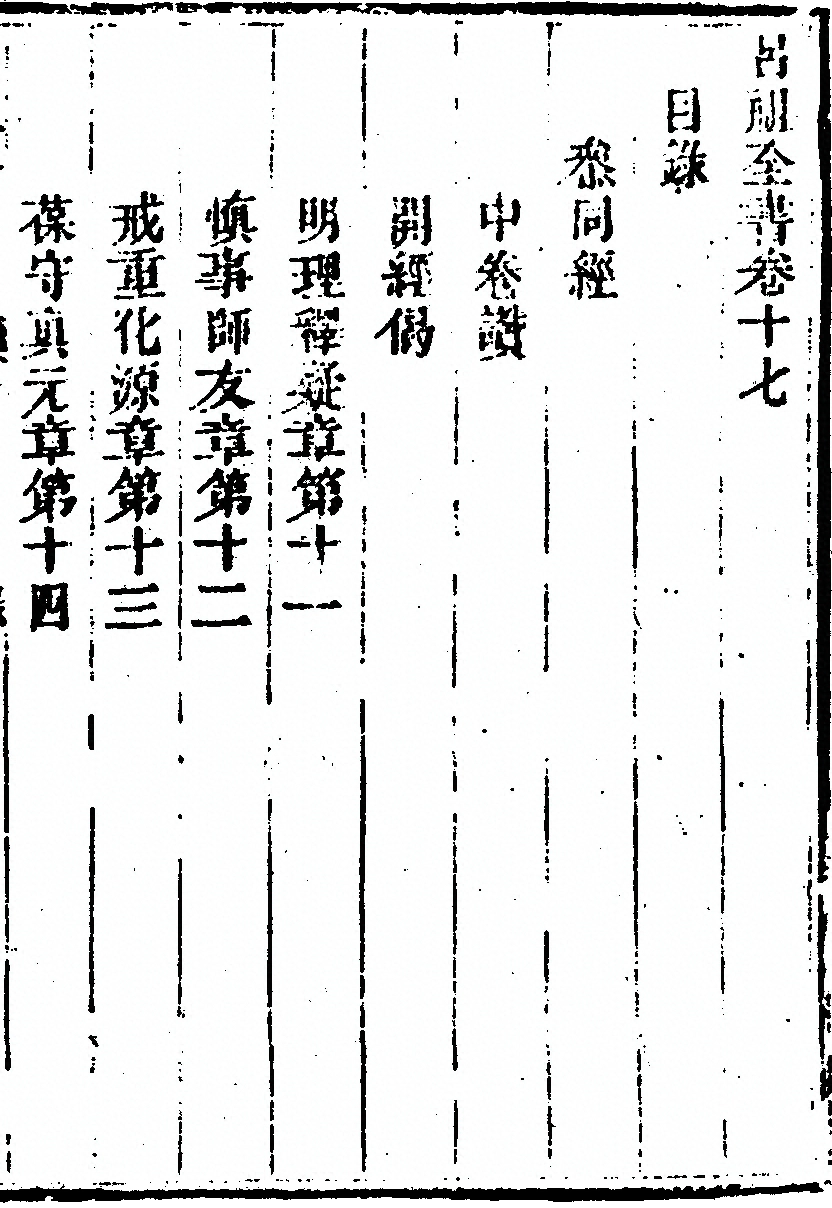 呂祖全書卷十七
目錄
叅同經
中卷讚
開經偈
明理釋疑章第十一
慎事師友章第十二
戒重化源章第十三
葆守真元章第十四